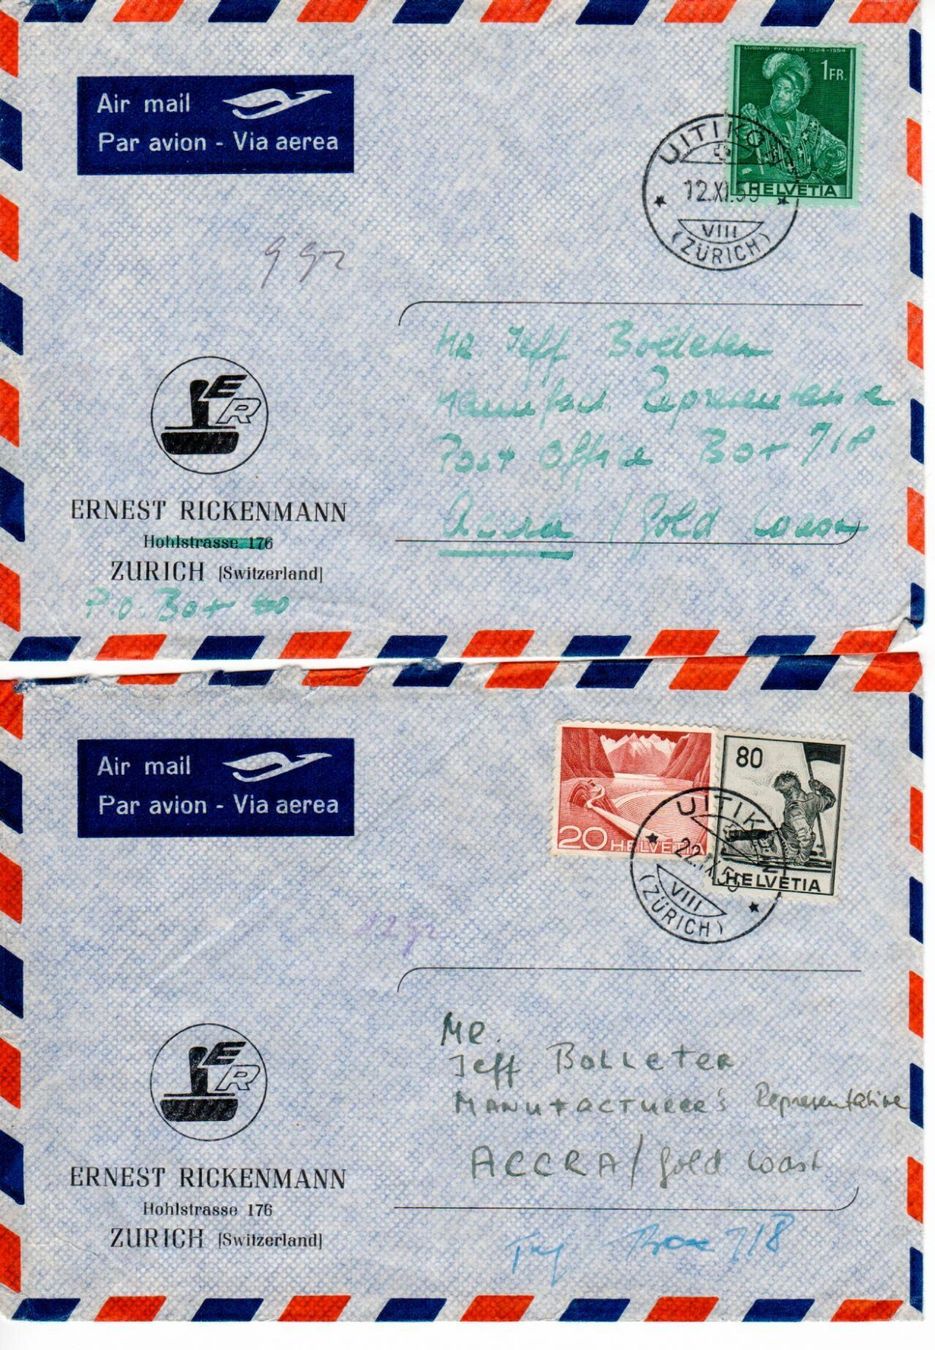 Air mail
Par avion - Via aerea
LUDWIG PFYFFER 1524-1594
1 FR.
HELVETIA
UITIKON
12.XI.55
VIII
(ZÜRICH)
9 gr
Mr. Jeff Bolleter
Manufact. Representative
Post Office Box 718
Accra / Gold Coast
ER
ERNEST RICKENMANN
Hohlstrasse 176
ZURICH [Switzerland]
P.O. Box
Air mail
Par avion - Via aerea
20 HELVETIA
80
HELVETIA
UITIKON
22.IX.5
VIII
(ZÜRICH)
12 gr
Mr.
Jeff Bolleter
Manufacturer's Representative
ACCRA / Gold Coast
ER
ERNEST RICKENMANN
Hohlstrasse 176
ZURICH [Switzerland]
Try Box 718